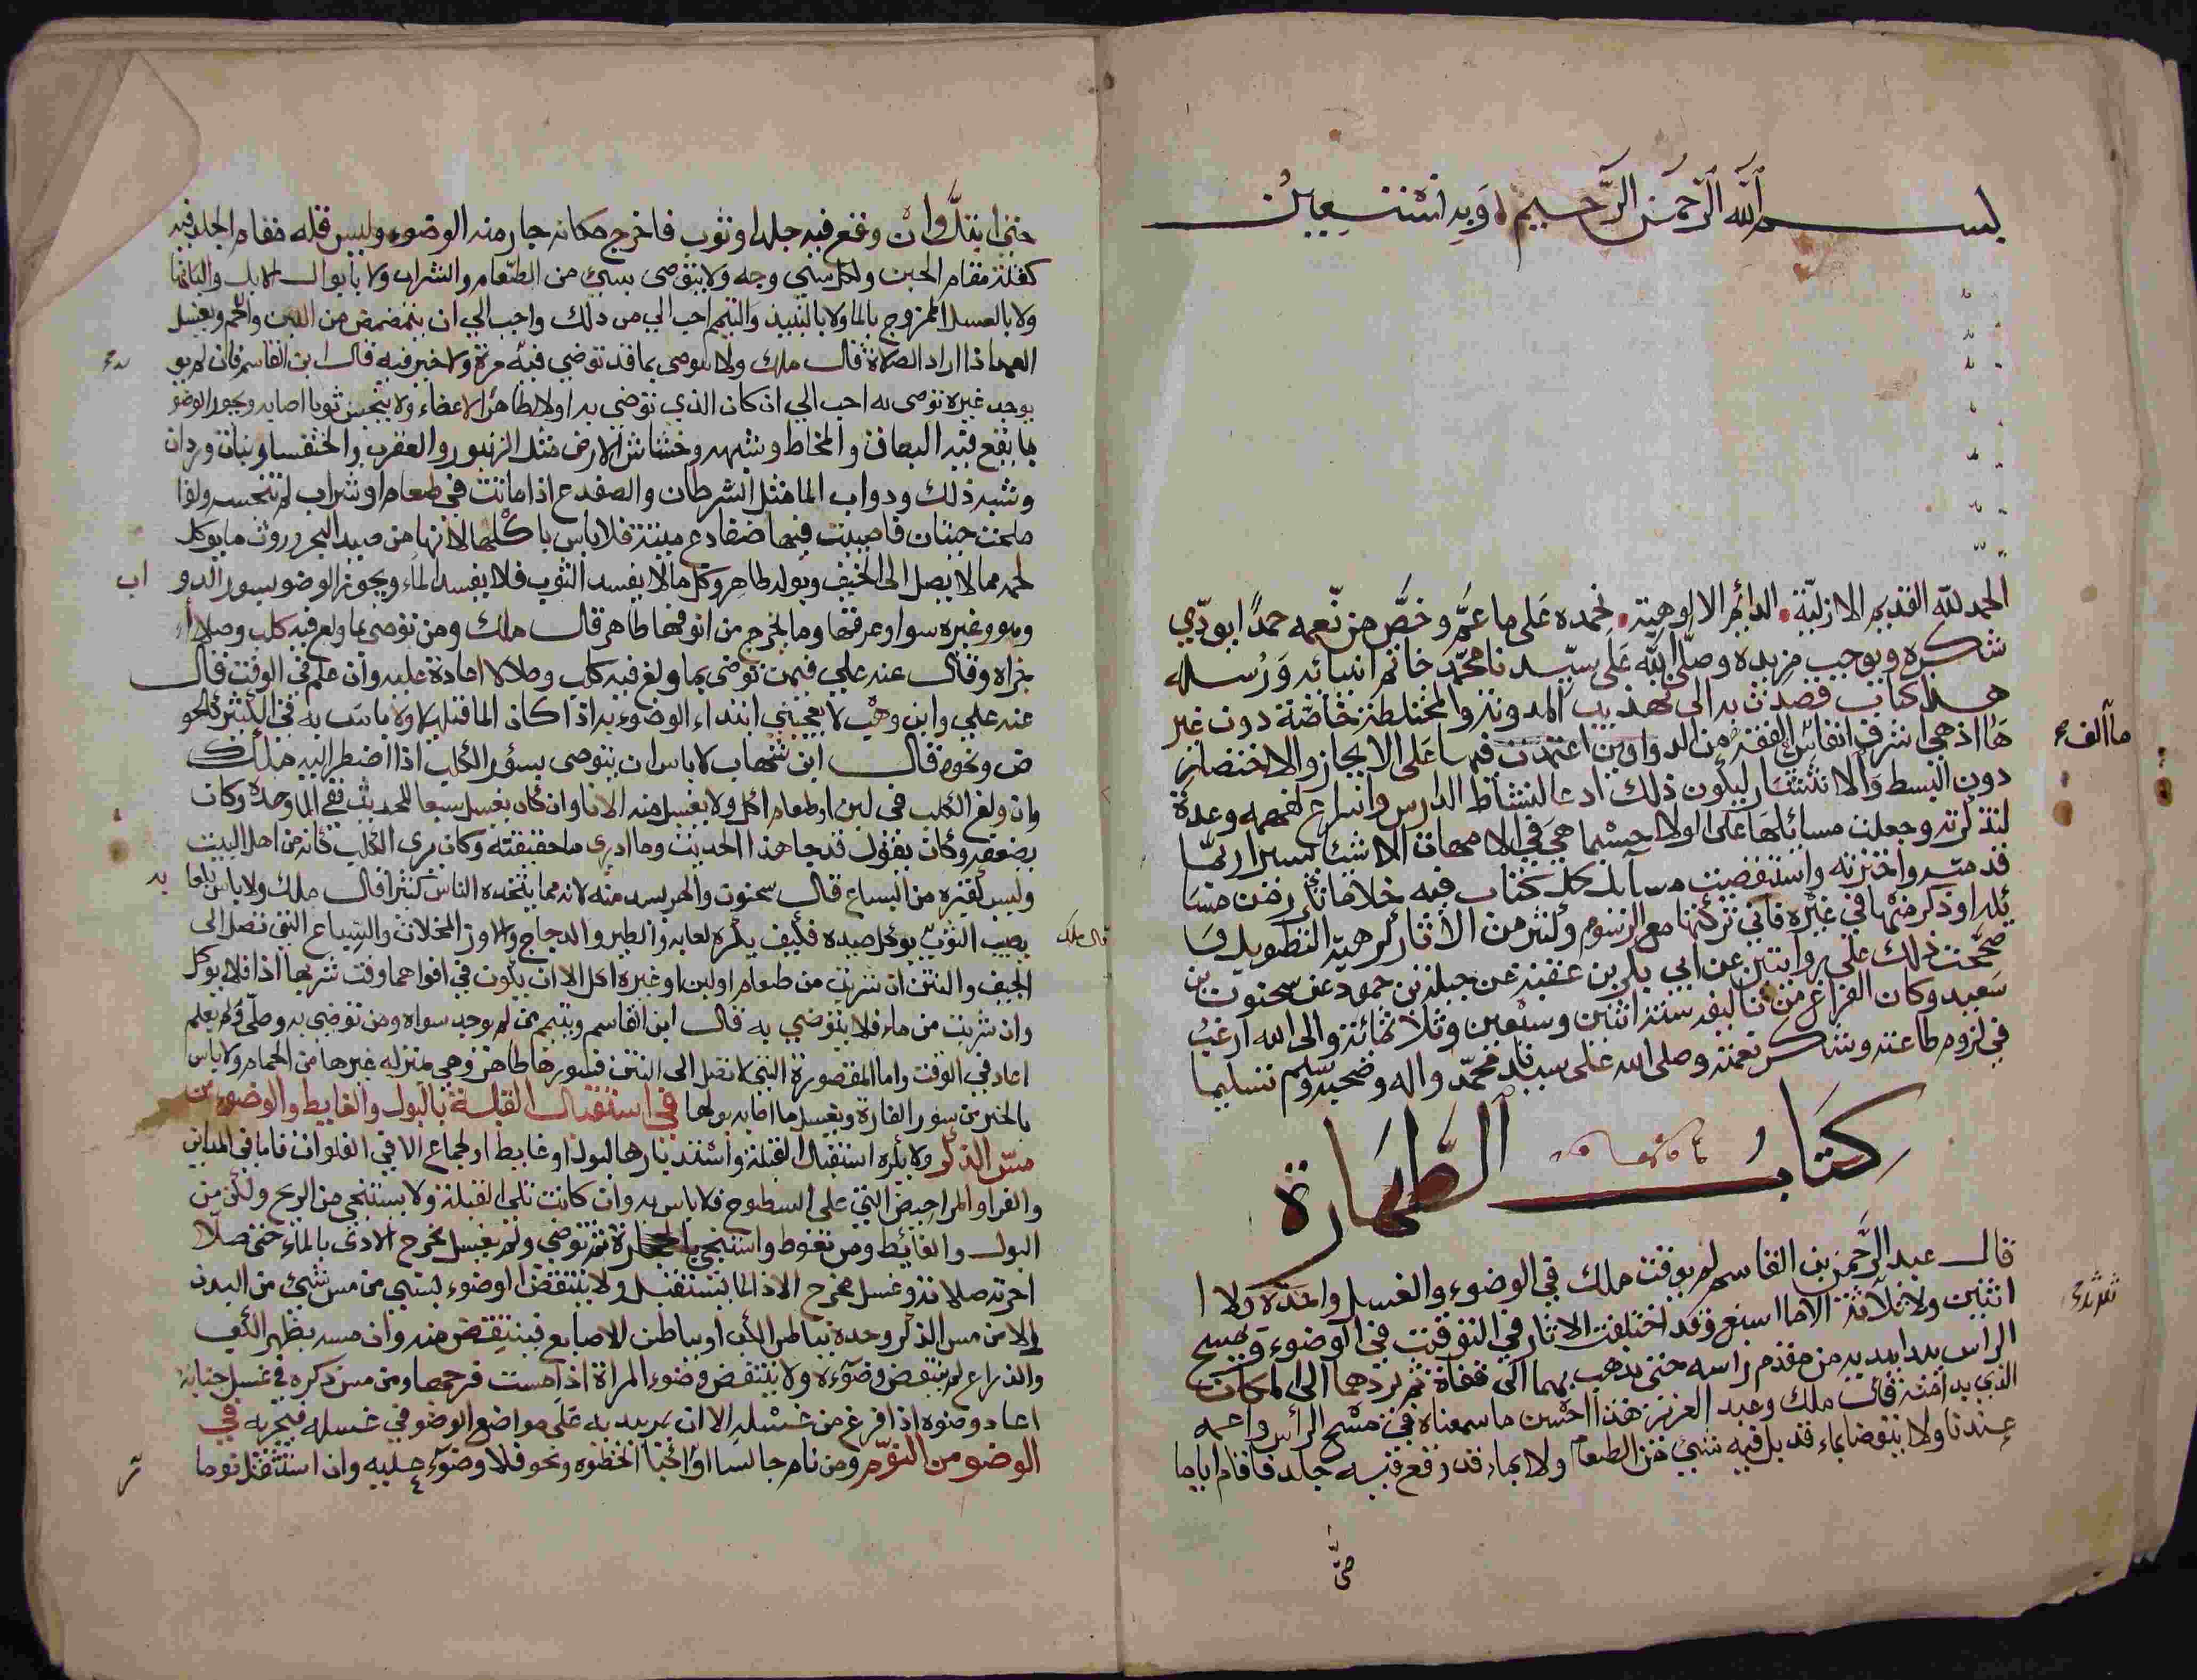 بسم الله الرحمن الرحيم وبه نستعين
الحمد لله القديم الازلية الدائم الالوهية نحمده على ما عم وخص من نعمه حمدا يودي
شكره ويوجب مزيده وصلى الله على سيدنا محمد خاتم انبيائه ورسله
هذا كتاب قصدت به الى تهذيب المدونة والمختلطة خاصة دون غير
ها اذ هي اشرف ما الف في الفقه من الدواوين اعتمدت فيها على الايجاز والاختصار
دون البسط والانتشار ليكون ذلك ادعا لنشاط الدارس واسرع لفهمه وعدة
لتذكرته وجعلت مسايلها على الولا حسبما هي في الامهات الا شيئا يسيرا ربما
قدمته واخرته واستقصيت مسايل كل كتاب فيه خلا ما تكرر من مسا
يله او ذكر منها في غيره فاني تركتها مع الرسوم وكثير من الاثار كرهية التطويل و
صححت ذلك على روايتي عن ابي بكر بن عقبة عن جبلة بن حمود عن سحنون بن
سعيد وكان الفراغ من تاليفه سنة اثنين وسبعين وثلاثمائة والى الله ارغب
في لزوم طاعته وشكر نعمته وصلى الله على سيدنا محمد واله وصحبه وسلم تسليما
كتاب الطهارة
قال عبد الرحمن بن القاسم لم يوقت ملك في الوضوء والغسل واحدة ولا
اثنين ولا ثلاثة الا ما اسبغ وقد اختلفت الاثار في التوقيت في الوضوء ويمسح
الراس يبدا بيديه من مقدم راسه حتى يذهب بهما الى قفاه ثم يردهما الى المكان
الذي بدا منه قال ملك وعبد العزيز هذا احسن ما سمعناه في مسح الرأس واعمه
عندنا ولا يتوضا بماء قد بل فيه شئ من الطعام ولا بماء قد وقع فيه جلد فاقام اياما
حتى
حتى ابتل وان وقع فيه جلد او ثوب فاخرج مكانه جاز منه الوضوء وليس قلة مقام الجلد فيه
كقلة مقام الخبز ولكل شئ وجه ولا يتوضى بشئ من الطعام والشراب ولا بابوال الابل والبانها
ولا بالعسل الممزوج بالما ولا بالنبيذ والتيمم احب الي من ذلك واحب الي ان يتمضمض من اللبن واللحم ويغسل
الغمر اذا اراد الصلاة قال ملك ولا يتوضى بما قد توضي فيه مرة ولا خير فيه قال ابن القاسم فان لم
يوجد غيره توضى به احب الي ان كان الذي توضي به اولا طاهر الاعضاء ولا ينجس ثوبا اصابه ويجوز الوضو
بما يقع فيه البصاق والمخاط وشبهه وخشاش الارض مثل الزنبور والعقرب والخنفسا وبنات وردان
وشبه ذلك ودواب الما مثل السرطان والضفدع اذا ماتت في طعام او شراب لم تنجسه واذا
ملحت حيتان فاصيبت فيها ضفادع ميتة فلا باس باكلها لانها من صيد البحر وروث ما يوكل
لحمه مما لا يصل الى الجيف وبوله طاهر وكل ما لا يفسد الثوب فلا يفسد الماء ويجوز الوضو بسور الدو
اب
وهو وغيره سوا وعرقها وما يخرج من انوفها طاهر قال ملك ومن توضى بما ولغ فيه كلب وصلا أ
جزاه وقال عنه علي فيمن توضى بما ولغ فيه كلب وصلا لا اعادة عليه وان علم في الوقت قال
عنه علي وابن وهب لا يعجبني ابتداء الوضوء به اذا كان الما قليلا ولا باس به في الكثير كالحو
ض ونحوه قال ابن شهاب لا باس ان يتوضى بسؤر الكلب اذا اضطر اليه ملك
وان ولغ الكلب في لبن او طعام اكل ولا يغسل منه الانا وان كان يغسل سبعا للحديث ففي الما وحده وكان
يضعفه وكان يقول قد جا هذا الحديث وما ادري ما حقيقته وكان يرى الكلب كانه من اهل البيت
وليس كغيره من السباع قال سحنون والهر ايسر منه لانه مما يتخذه الناس كثيرا قال ملك ولا باس بلعا
به
يصيب الثوب يوكل صيده فكيف يكره لعابه والطير والدجاج والاوز المخلات والسباع التي تصل الى
قال ملك
الجيف والنتن ان شربت من طعام او لبن او غيره اكل الا ان يكون في افواهها وقت شربها اذا فلا يوكل
وان شربت من ماء فلا يتوضي به قال ابن القاسم ويتيمم من لم يوجد سواه ومن توضي به وصلى ولم يعلم
اعاد في الوقت واما المقصورة التي لا تصل الى النتن فسورها طاهر وهي بمنزله غيرها من الحمام ولا باس
بالخبز من سور الفارة ويغسل ما اصابه بولها في استقبال القبلة بالبول والغايط والوضوء من
مس الذكر ولا يكره استقبال القبلة واستدبارها لبول او غايط او لجماع الا في الفلوات فاما في المداين
والقرا والمراحيض التي على السطوح فلا باس به وان كانت تلي القبلة ولا يستنجي من الريح ولكن من
البول والغائط ومن تغوط واستنجى بالحجارة ثم توضي ولم يغسل مخرج الاذى بالماء حتى صلا
اجزته صلاته وغسل مخرج الاذى لما يستقبل ولا ينتقض الوضوء لشئ من مس شئ من البدن
الا من مس الذكر وحده بباطن الكف او بباطن الاصابع فينتقض منه وان مسه بظهر الكف
والذراع لم ينتقض وضوءه ولا ينتقض وضوء المراة اذا مست فرجها ومن مس ذكره في غسل جنابة
اعاد وضوه اذا فرغ من غسله الا ان يمر بيديه على مواضع الوضو في غسله فيجزيه في
الوضو من النوم ومن نام جالسا او احتبا الخطوه ونحو فلا وضوء عليه وان استثقل نوما